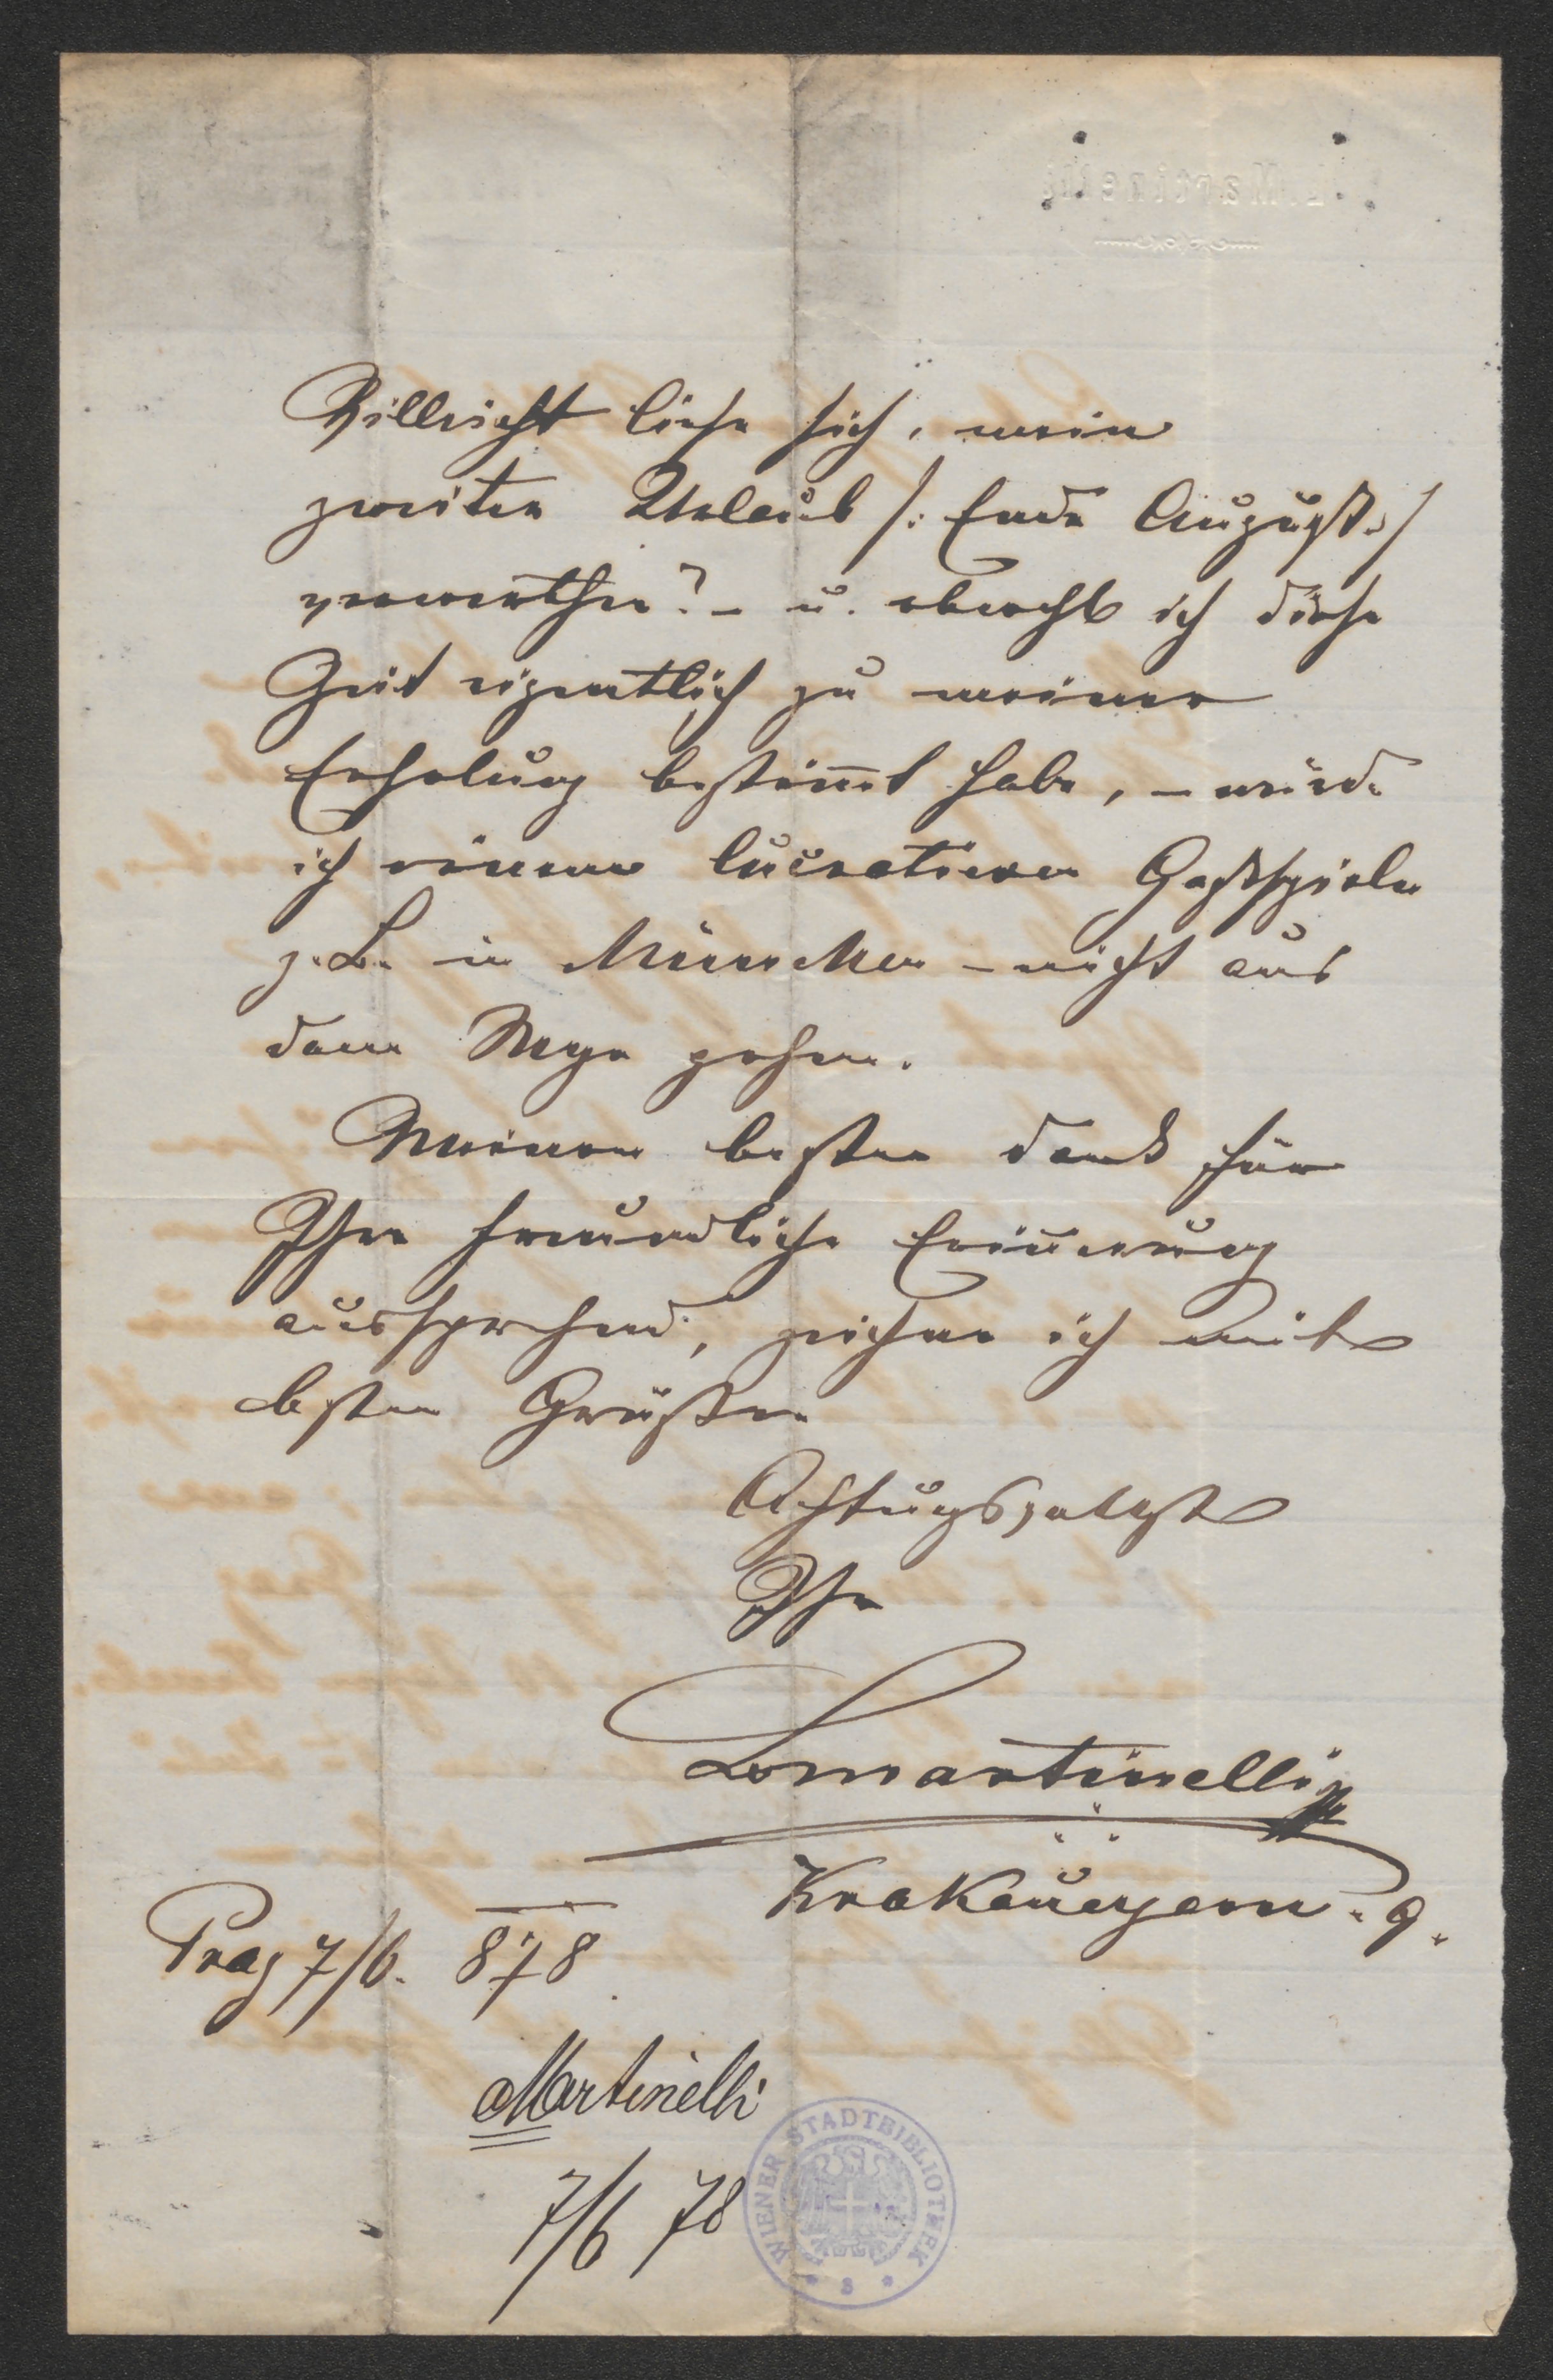 L. Martinelli
Villeicht ließe sich, mein
zweiter Urlaub /: Ende August :/
verwerthen? – u. obwohl ich diese
Zeit eigentlich zu meiner
Erholung bestim̅t habe, – würde
ich einem lucrativen Gastspiele
z. B. in München – nicht aus
dem Wege gehen.
Meinen besten Dank für
Ihre freundliche Erin̅erung
aussprechend, zeichne ich mit
besten Grüßen
Achtungsvollst
Ihr
L Martinelli
Krakauergasse 9.
Prag 7/6. 878
Martinelli
7/6 78
WIENER STADTBIBLIOTHEK